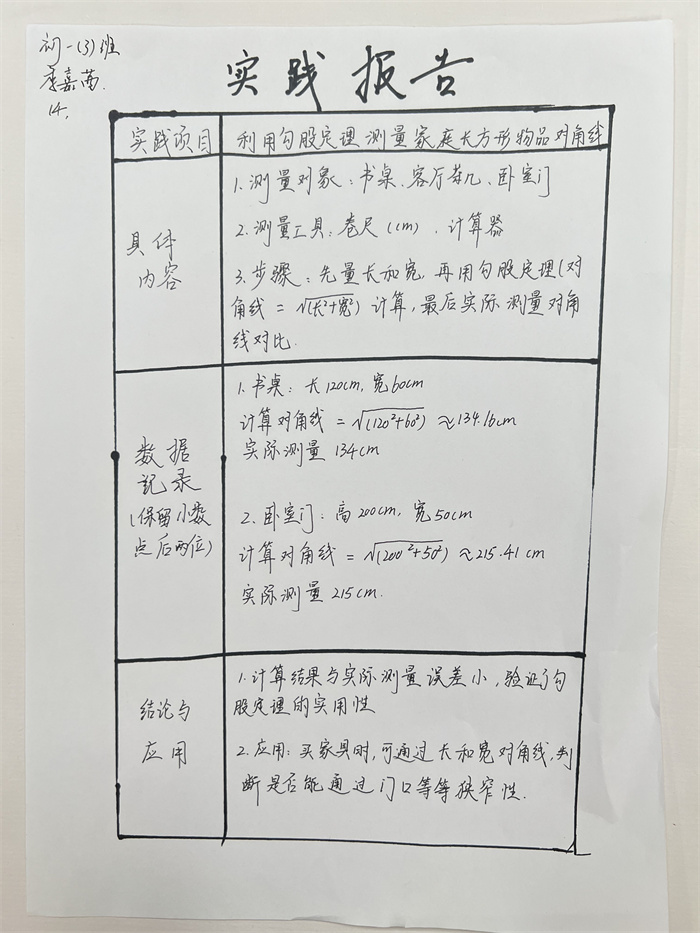 初一(3)班
李嘉茜.
14.
实践报告
实践项目
利用勾股定理测量家庭长方形物品对角线
具体
内容
1.测量对象:书桌、客厅茶几、卧室门
2.测量工具:卷尺(cm)、计算器
3.步骤:先量长和宽,再用勾股定理(对
角线=√(长²+宽²)计算,最后实际测量对角
线对比.
数据
记录
(保留小数
点后两位)
1.书桌:长120cm,宽60cm
计算对角线=√(120²+60²)≈134.16cm
实际测量134cm
2.卧室门:高200cm,宽50cm
计算对角线=√(200²+50²)≈215.41cm
实际测量215cm.
结论与
应用
1.计算结果与实际测量误差小,验证了勾
股定理的实用性
2.应用:买家具时,可通过长和宽对角线,判
断是否能通过门口等等狭窄性.